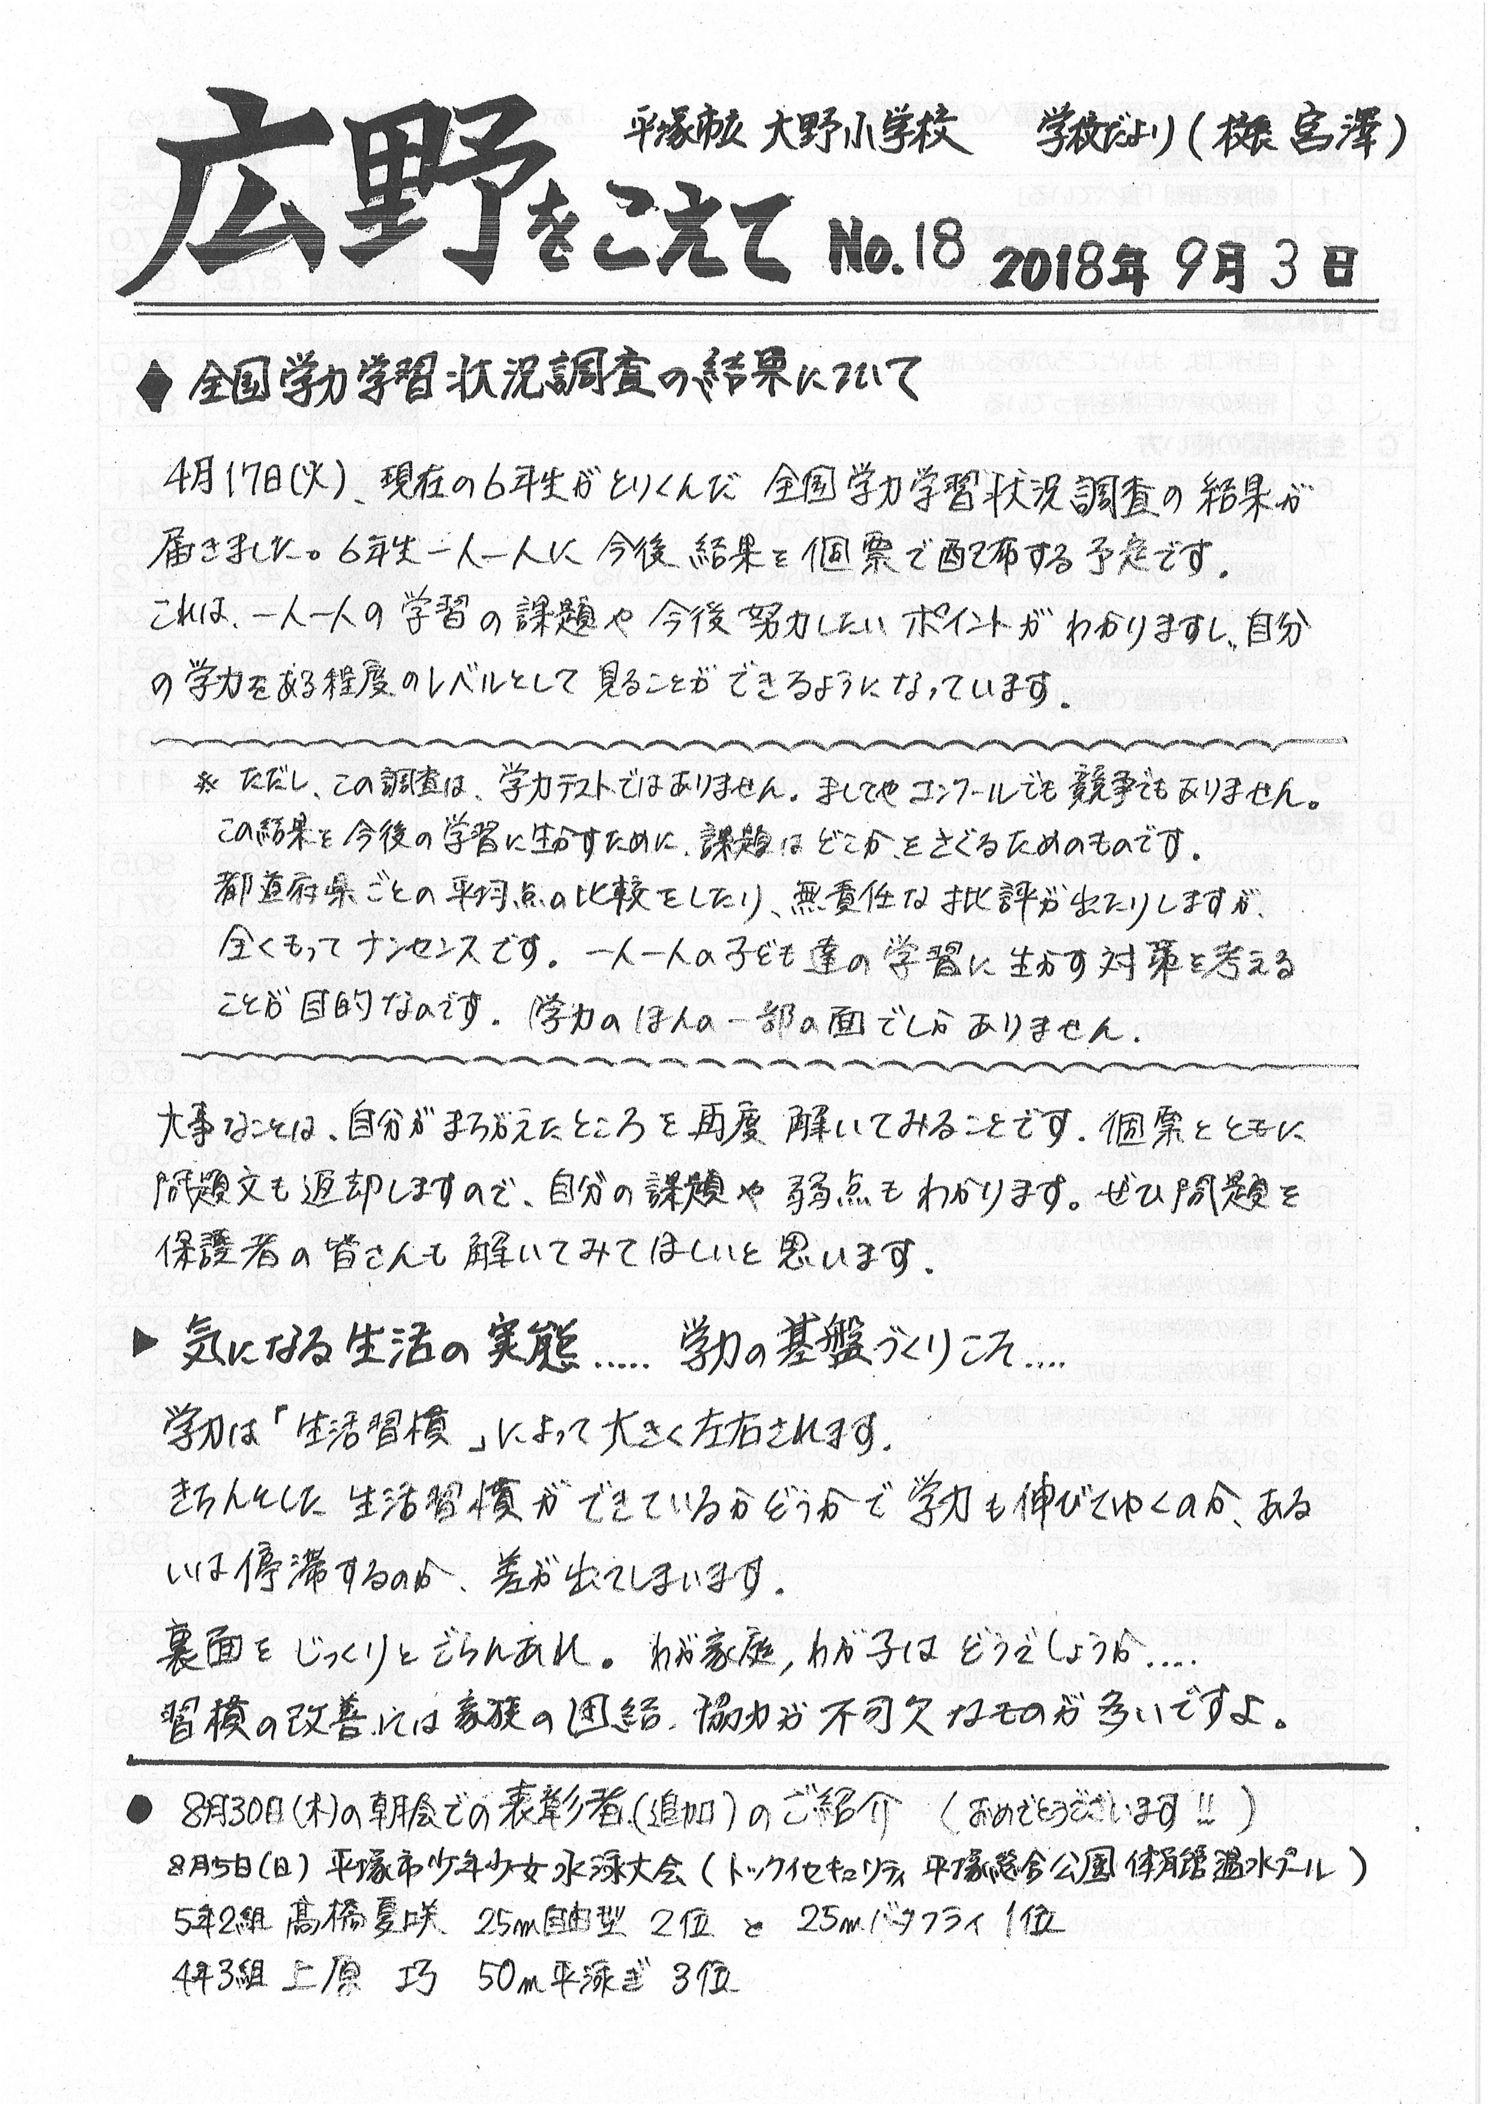 平塚市立 大野小学校　学校だより（校長 宮澤）
広野をこえて No.18 2018年 9月 3日
◆ 全国学力学習状況調査の結果について
4月17日(火)、現在の6年生がとりくんだ 全国学力学習状況調査の結果が
届きました。6年生一人一人に 今後 結果を個票で配布する予定です。
これは、一人一人の学習の課題や今後努力したいポイントがわかりますし、自分
の学力をある程度のレベルとして見ることができるようになっています。
※ ただし、この調査は、学力テストではありません。ましてやコンクールでも競争でもありません。
この結果を今後の学習に生かすために、課題はどこか、をさぐるためのものです。
都道府県ごとの平均点の比較をしたり、無責任な批評が出たりしますが、
全くもってナンセンスです。一人一人の子ども達の学習に生かす対策を考える
ことが目的なのです。学力のほんの一部の面でしかありません。
大事なことは、自分がまちがえたところを再度 解いてみることです。個票とともに
問題文も返却しますので、自分の課題や弱点もわかります。ぜひ問題を
保護者の皆さんも解いてみてほしいと思います。
▶ 気になる生活の実態..... 学力の基盤づくりこそ....
学力は「生活習慣」によって大きく左右されます。
きちんとした生活習慣ができているかどうかで学力も伸びてゆくのか、ある
いは停滞するのか、差が出てしまいます。
裏面をじっくりとごらんあれ。わが家庭，わが子はどうでしょうか.....
習慣の改善には家族の団結、協力が不可欠なものが多いですよ。
● 8月30日(木)の朝会での表彰者(追加)のご紹介 (おめでとうございます!!)
8月5日(日) 平塚市少年少女水泳大会 (トッケイセキュリティ平塚総合公園体育館温水プール)
5年2組 髙橋夏咲 25m自由型 2位 と 25mバタフライ 1位
4年3組 上原 巧 50m平泳ぎ 3位